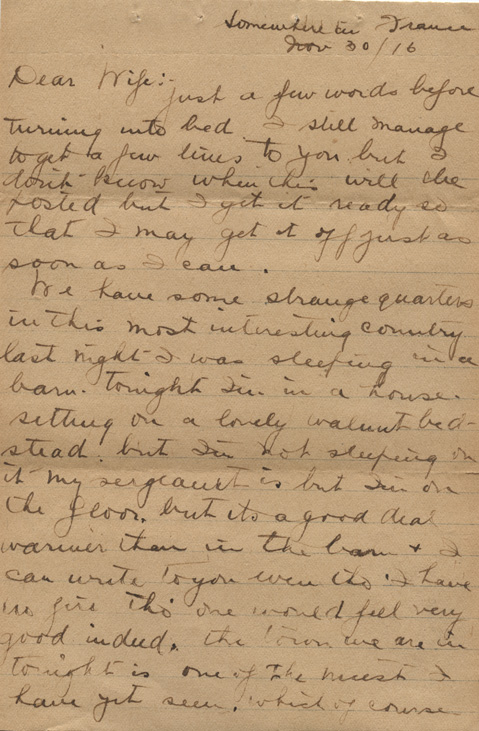 Somewhere in France
Nov 30/16
Dear Wife:-
just a few words before
turning into bed. I still manage
to get a few lines to you but I
don't know when this will be
posted but I get it ready so
that I may get it off just as
soon as I can.
We have some strange quarters
in this most interesting country
last night I was sleeping in a
barn. tonight I'm in a house.
setting on a lovely walnut bed-
stead. but I'm not sleeping on
it my sergeant is but I'm on
the floor. but its a good deal
warmer than in the barn + I
can write to you even tho' I have
no fire tho' one would feel very
good indeed. the town we are in
tonight is one of the nicest I
have yet seen. which of course